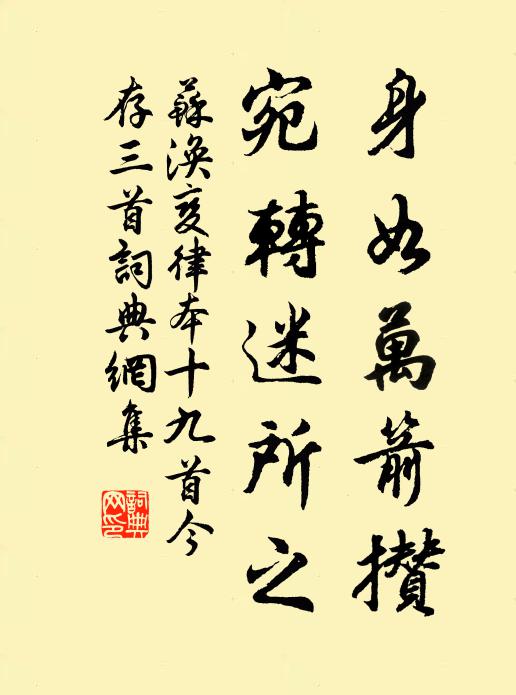 身如萬箭攢
宛轉迷所之
蘇渙變律本十九首今
存三首詞典網集
詞典
网印